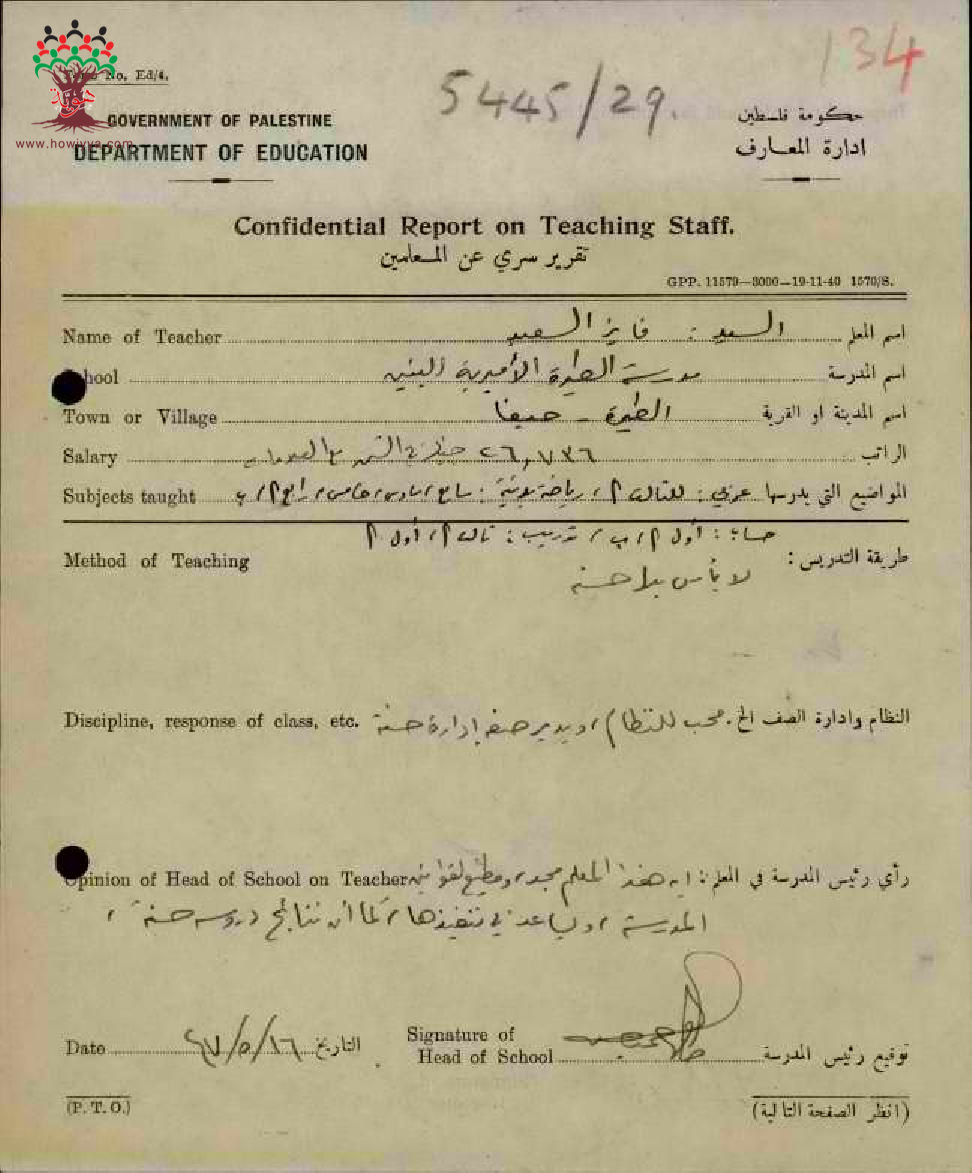 134
5445/29.
Form No. Ed/4.
هوية
www.howiyya.com
GOVERNMENT OF PALESTINE
حكومة فلسطين
DEPARTMENT OF EDUCATION
ادارة المعارف
Confidential Report on Teaching Staff.
تقرير سري عن المعلمين
GPP. 11579—3000—19-11-40 1570/S.
Name of Teacher السيد : فايز السعيد اسم المعلم
School مدرسة الطيرة الأميرية للبنين اسم المدرسة
Town or Village الطيرة - حيفا اسم المدينة او القرية
Salary ٢٦,٧٣٦ في الشهر مع الراتب
Subjects taught المواضيع التي يدرسها عربي : للثالث ٢، رياضة بدنية : سابع، سادس، خامس، رابع ٢، ب
حساب : أول ٢، ب، تدريب : ثالث ٢، أول ٢
Method of Teaching طريقة التدريس :
لا بأس بها حسنة
Discipline, response of class, etc. النظام وادارة الصف الخ. محب للنظام، ويدير صفه إدارة حسنة
Opinion of Head of School on Teacher رأي رئيس المدرسة في المعلم : إن هذا المعلم مجد، ومطيع لقوانين
المدرسة، ويساعد في تنفيذها، كما أن نتائج دروسه حسنة،
Date ٤٧/٥/١٦ التاريخ
Signature of
Head of School توقيع رئيس المدرسة
(P. T. O.) (انظر الصفحة التالية)